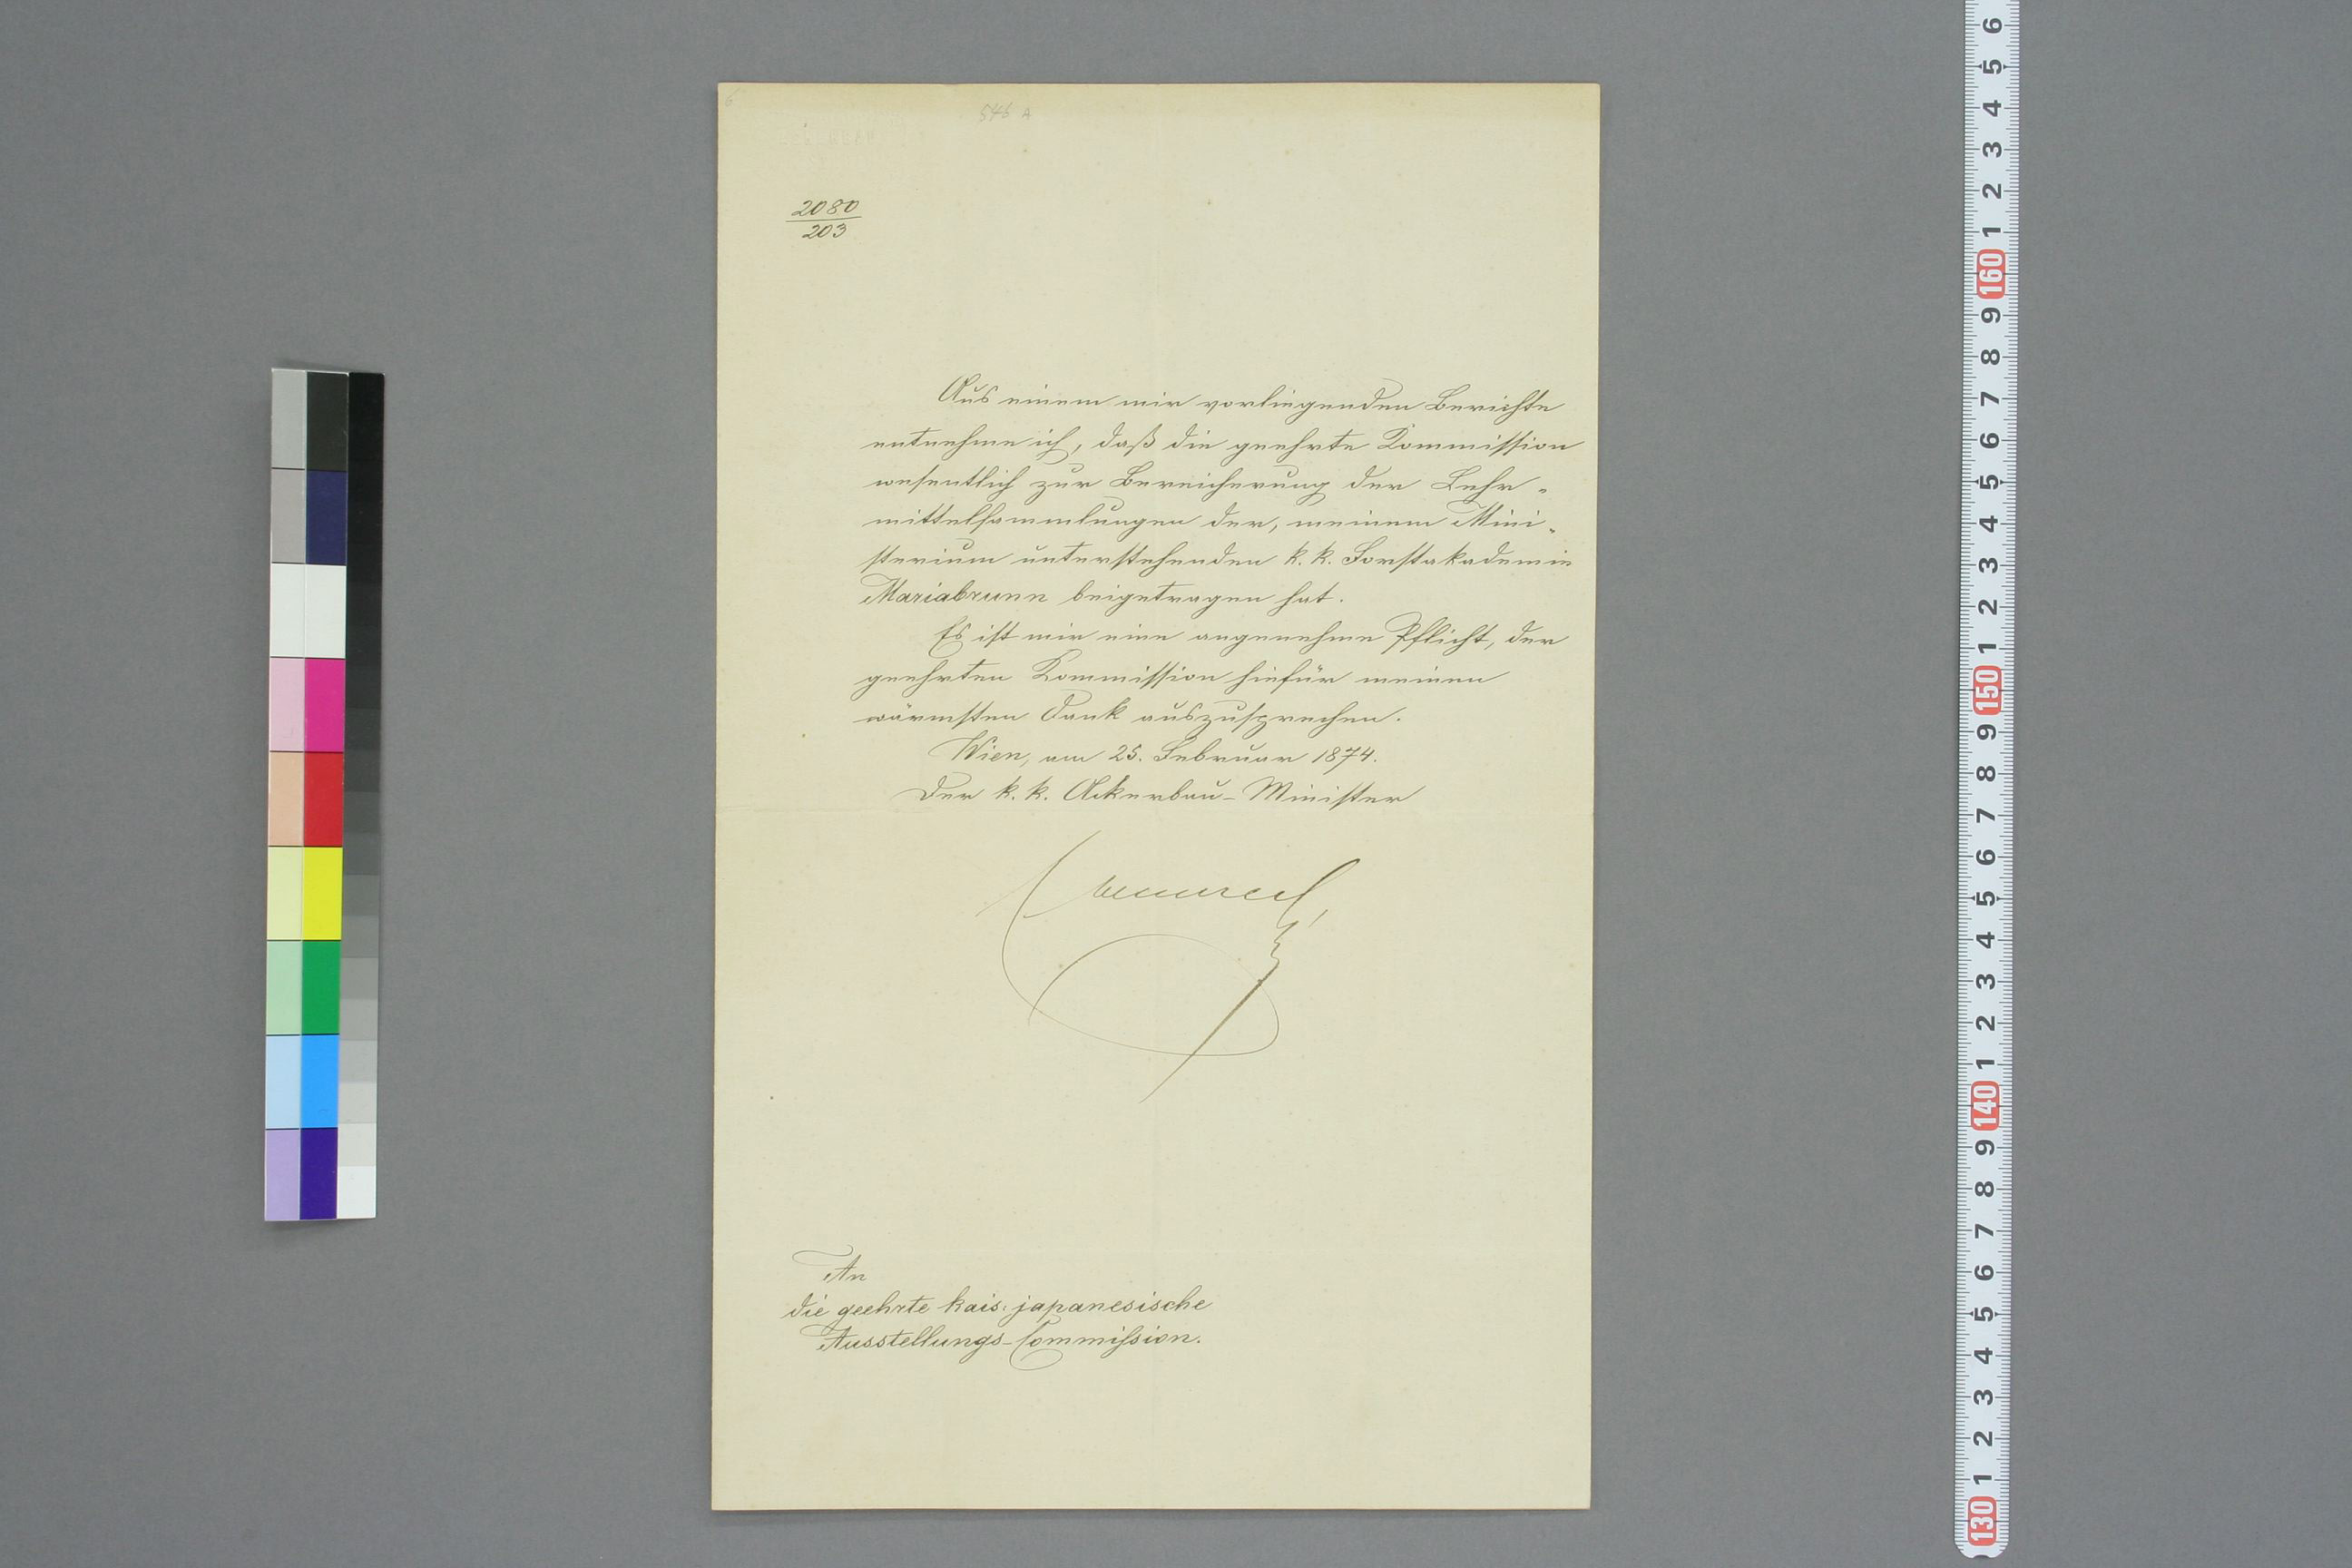 546 A
2080
203
Aus einem mir vorliegenden Berichte
entnehme ich, daß die geehrte Kommission
wesentlich zur Bereicherung der Lehr-
mittelsammlungen der, meinem Mini-
sterium unterstehenden k. k. Forstakademie
Mariabrunn beigetragen hat.
Es ist mir eine angenehme Pflicht, der
geehrten Kommission hiefür meinen
wärmsten Dank auszusprechen.
Wien, am 25. Februar 1874.
Der k. k. Ackerbau-Minister
An
die geehrte kais. japanesische
Ausstellungs-Commission.
6
5
4
3
2
1
160
9
8
7
6
5
4
3
2
1
150
9
8
7
6
5
4
3
2
1
140
9
8
7
6
5
4
3
2
1
130